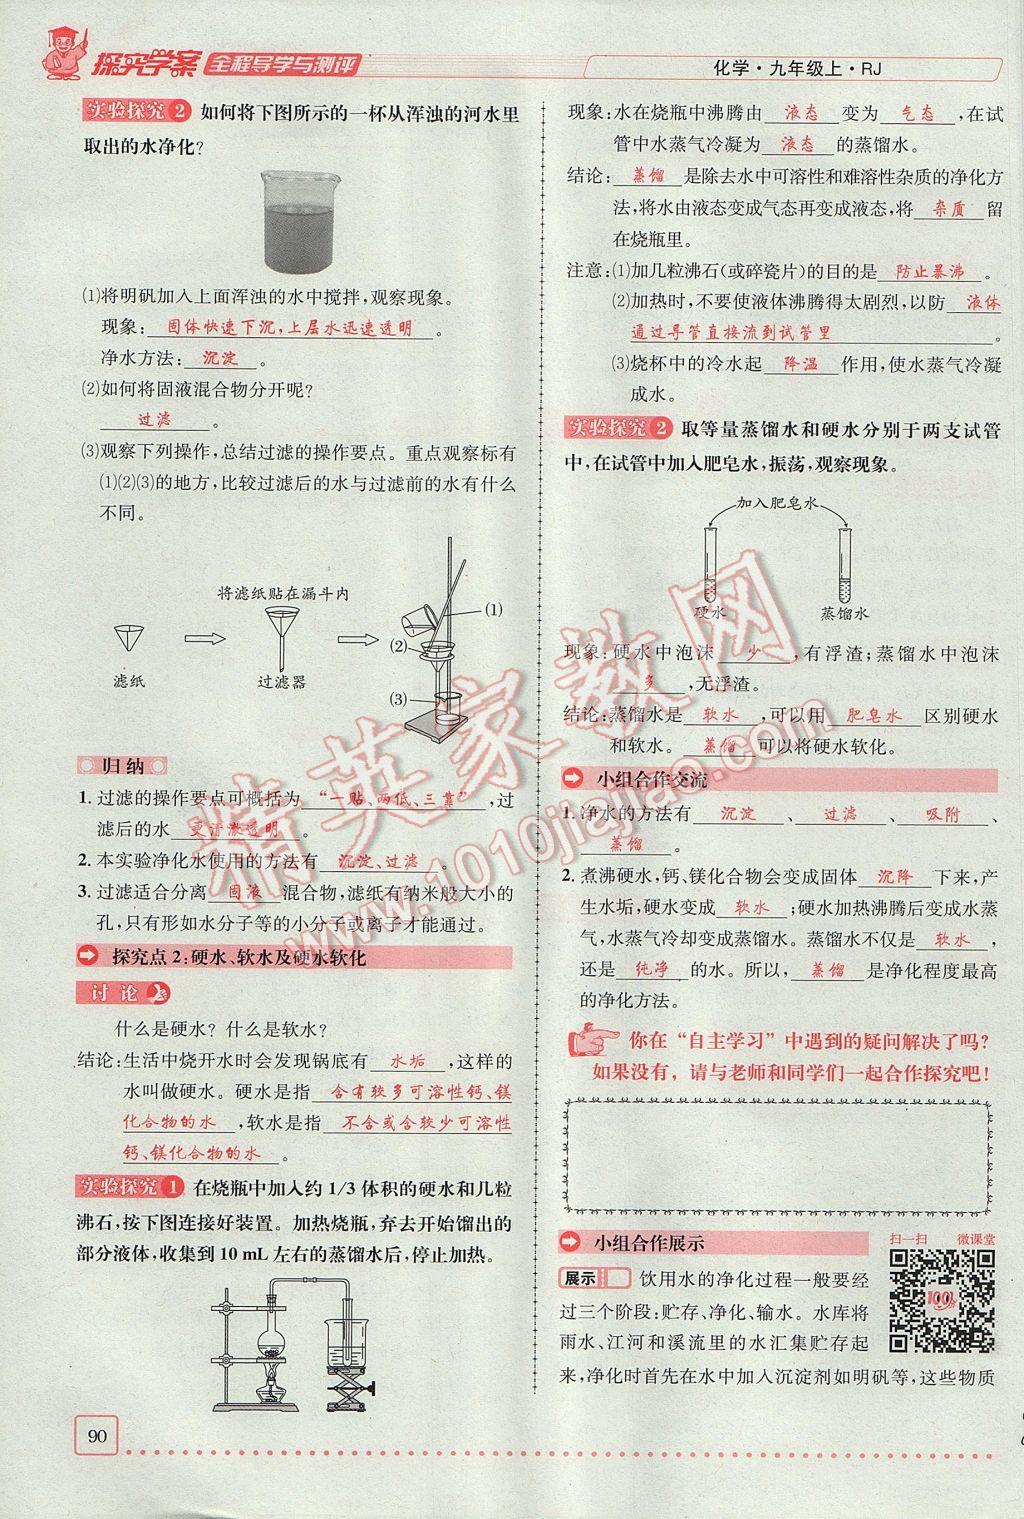 探究学案 全程导学与测评
化学·九年级上·RJ
实验探究2 如何将下图所示的一杯从浑浊的河水里
取出的水净化?
⑴将明矾加入上面浑浊的水中搅拌,观察现象。
现象: 固体快速下沉,上层水迅速透明 。
净水方法: 沉淀 。
⑵如何将固液混合物分开呢?
过滤 。
⑶观察下列操作,总结过滤的操作要点。重点观察标有
⑴⑵⑶的地方,比较过滤后的水与过滤前的水有什么
不同。
将滤纸贴在漏斗内
(1)
(2)
滤纸
过滤器
(3)
归纳
1. 过滤的操作要点可概括为 “一贴、两低、三靠” ,过
滤后的水 更清澈透明 。
2. 本实验净化水使用的方法有 沉淀、过滤 。
3. 过滤适合分离 固液 混合物,滤纸有纳米般大小的
孔,只有形如水分子等的小分子或离子才能通过。
探究点2:硬水、软水及硬水软化
讨论
什么是硬水? 什么是软水?
结论:生活中烧开水时会发现锅底有 水垢 ,这样的
水叫做硬水。硬水是指 含有较多可溶性钙、镁
化合物的水 ,软水是指 不含或含较少可溶性
钙、镁化合物的水 。
实验探究1 在烧瓶中加入约1/3体积的硬水和几粒
沸石,按下图连接好装置。加热烧瓶,弃去开始馏出的
部分液体,收集到10 mL左右的蒸馏水后,停止加热。
90
现象:水在烧瓶中沸腾由 液态 变为 气态 ,在试
管中水蒸气冷凝为 液态 的蒸馏水。
结论: 蒸馏 是除去水中可溶性和难溶性杂质的净化方
法,将水由液态变成气态再变成液态,将 杂质 留
在烧瓶里。
注意:⑴加几粒沸石(或碎瓷片)的目的是 防止暴沸 。
⑵加热时,不要使液体沸腾得太剧烈,以防 液体
通过导管直接流到试管里 。
⑶烧杯中的冷水起 降温 作用,使水蒸气冷凝
成水。
实验探究2 取等量蒸馏水和硬水分别于两支试管
中,在试管中加入肥皂水,振荡,观察现象。
加入肥皂水
硬水
蒸馏水
现象:硬水中泡沫 少 ,有浮渣;蒸馏水中泡沫
多 ,无浮渣。
结论:蒸馏水是 软水 ,可以用 肥皂水 区别硬水
和软水。 蒸馏 可以将硬水软化。
小组合作交流
1. 净水的方法有 沉淀 、 过滤 、 吸附 、
蒸馏 。
2. 煮沸硬水,钙、镁化合物会变成固体 沉降 下来,产
生水垢,硬水变成 软水 ;硬水加热沸腾后变成水蒸
气,水蒸气冷却变成蒸馏水。蒸馏水不仅是 软水 ,
还是 纯净 的水。所以, 蒸馏 是净化程度最高
的净化方法。
你在“自主学习”中遇到的疑问解决了吗?
如果没有,请与老师和同学们一起合作探究吧!
小组合作展示
扫一扫 微课堂
展示 饮用水的净化过程一般要经
过三个阶段:贮存、净化、输水。水库将
雨水、江河和溪流里的水汇集贮存起
来,净化时首先在水中加入沉淀剂如明矾等,这些物质
100分
精英家教网
www.1010jiajiao.com